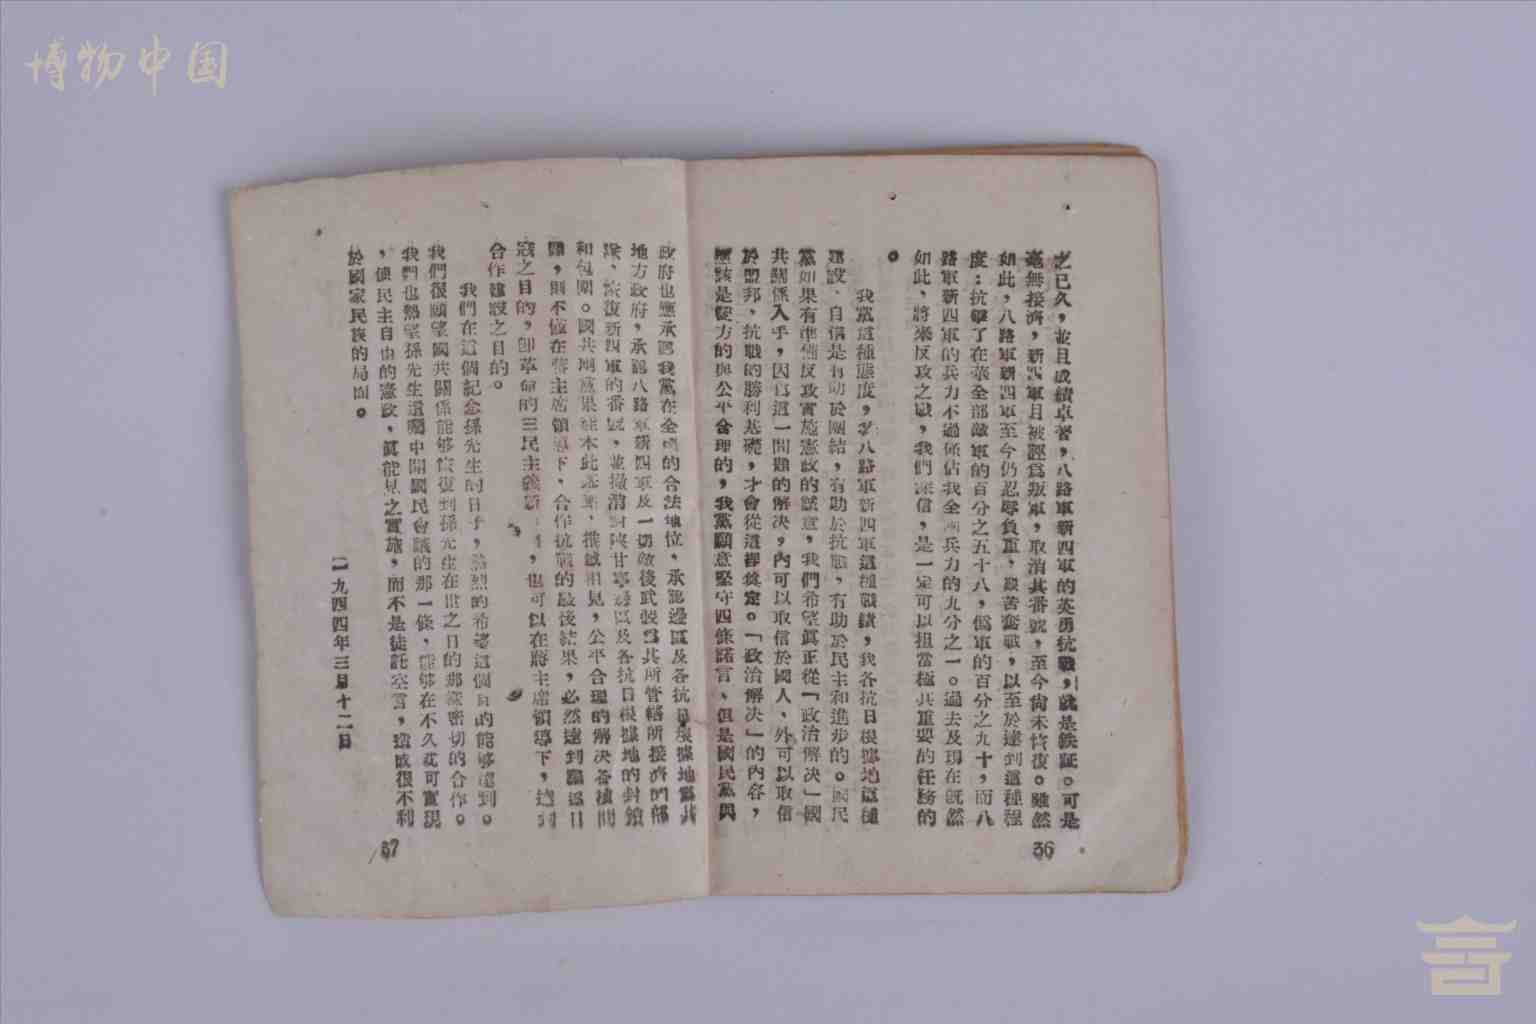 博物中国
之已久，並且成績卓著，八路軍新四軍的英勇抗戰，就是鉄証。可是
毫無接濟，新四軍且被誣爲叛軍，取消其番號，至今尙未恢復。雖然
如此，八路軍新四軍至今仍忍辱負重，艱苦奮戰，以至於達到這種程
度：抗擊了在華全部敵軍的百分之五十八，僞軍的百分之九十，而八
路軍新四軍的兵力不過僅佔我全國兵力的九分之一。過去及現在旣然
如此，將來反攻之戰，我們深信，是一定可以担當極其重要的任務的
。
我黨這種態度，求八路軍新四軍這種戰績，我各抗日根據地這種
建設，自信是有助於團結，有助於抗戰，有助於民主和進步的。國民
黨如果有準備反攻實施憲政的誠意，我們希望眞正從「政治解決」國
共關係入手，因爲這一問題的解決，內可以取信於國人，外可以取信
於盟邦，抗戰的勝利基礎，才會從這裡奠定。「政治解決」的內容，
應該是雙方的與公平合理的，我黨願意堅守四條諾言，但是國民黨與
36
政府也應承認我黨在全國的合法地位，承認邊區及各抗日根據地爲其
地方政府，承認八路軍新四軍及一切敵後武裝爲其所管轄所接濟的部
隊，恢復新四軍的番號，並撤消對陝甘寧邊區及各抗日根據地的封鎖
和包圍。國共兩黨果能本此㤗，推誠相見，公平合理的解決各種問
題，則不僅在蔣主席領導下，合作抗戰的最後結果，必然達到驅逐日
寇之目的，卽革命的三民主義，也可以在將主席領導下，達到
合作建設之目的。
我們在這個紀念孫先生的日子，熱烈的希望這個目的能够達到。
我們很願望國共關係能够恢復到孫先生在世之日的那樣密切的合作。
我們也熱望孫先生遺囑中開國民會議的那一條，能够在不久就可實現
，使民主自由的憲政，眞能見之實施，而不是徒託空言，造成很不利
於國家民族的局面。
一九四四年三月十二日
37